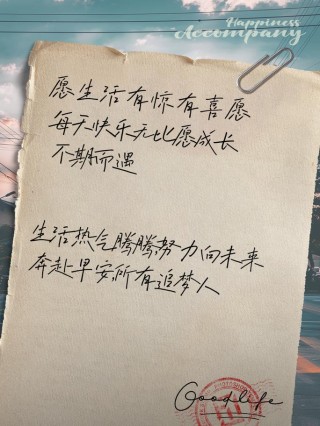 Happiness
Accompany
愿生活有惊有喜愿
每天快乐无比愿成长
不期而遇
生活热气腾腾努力向未来
奔赴早安所有追梦人
Good life